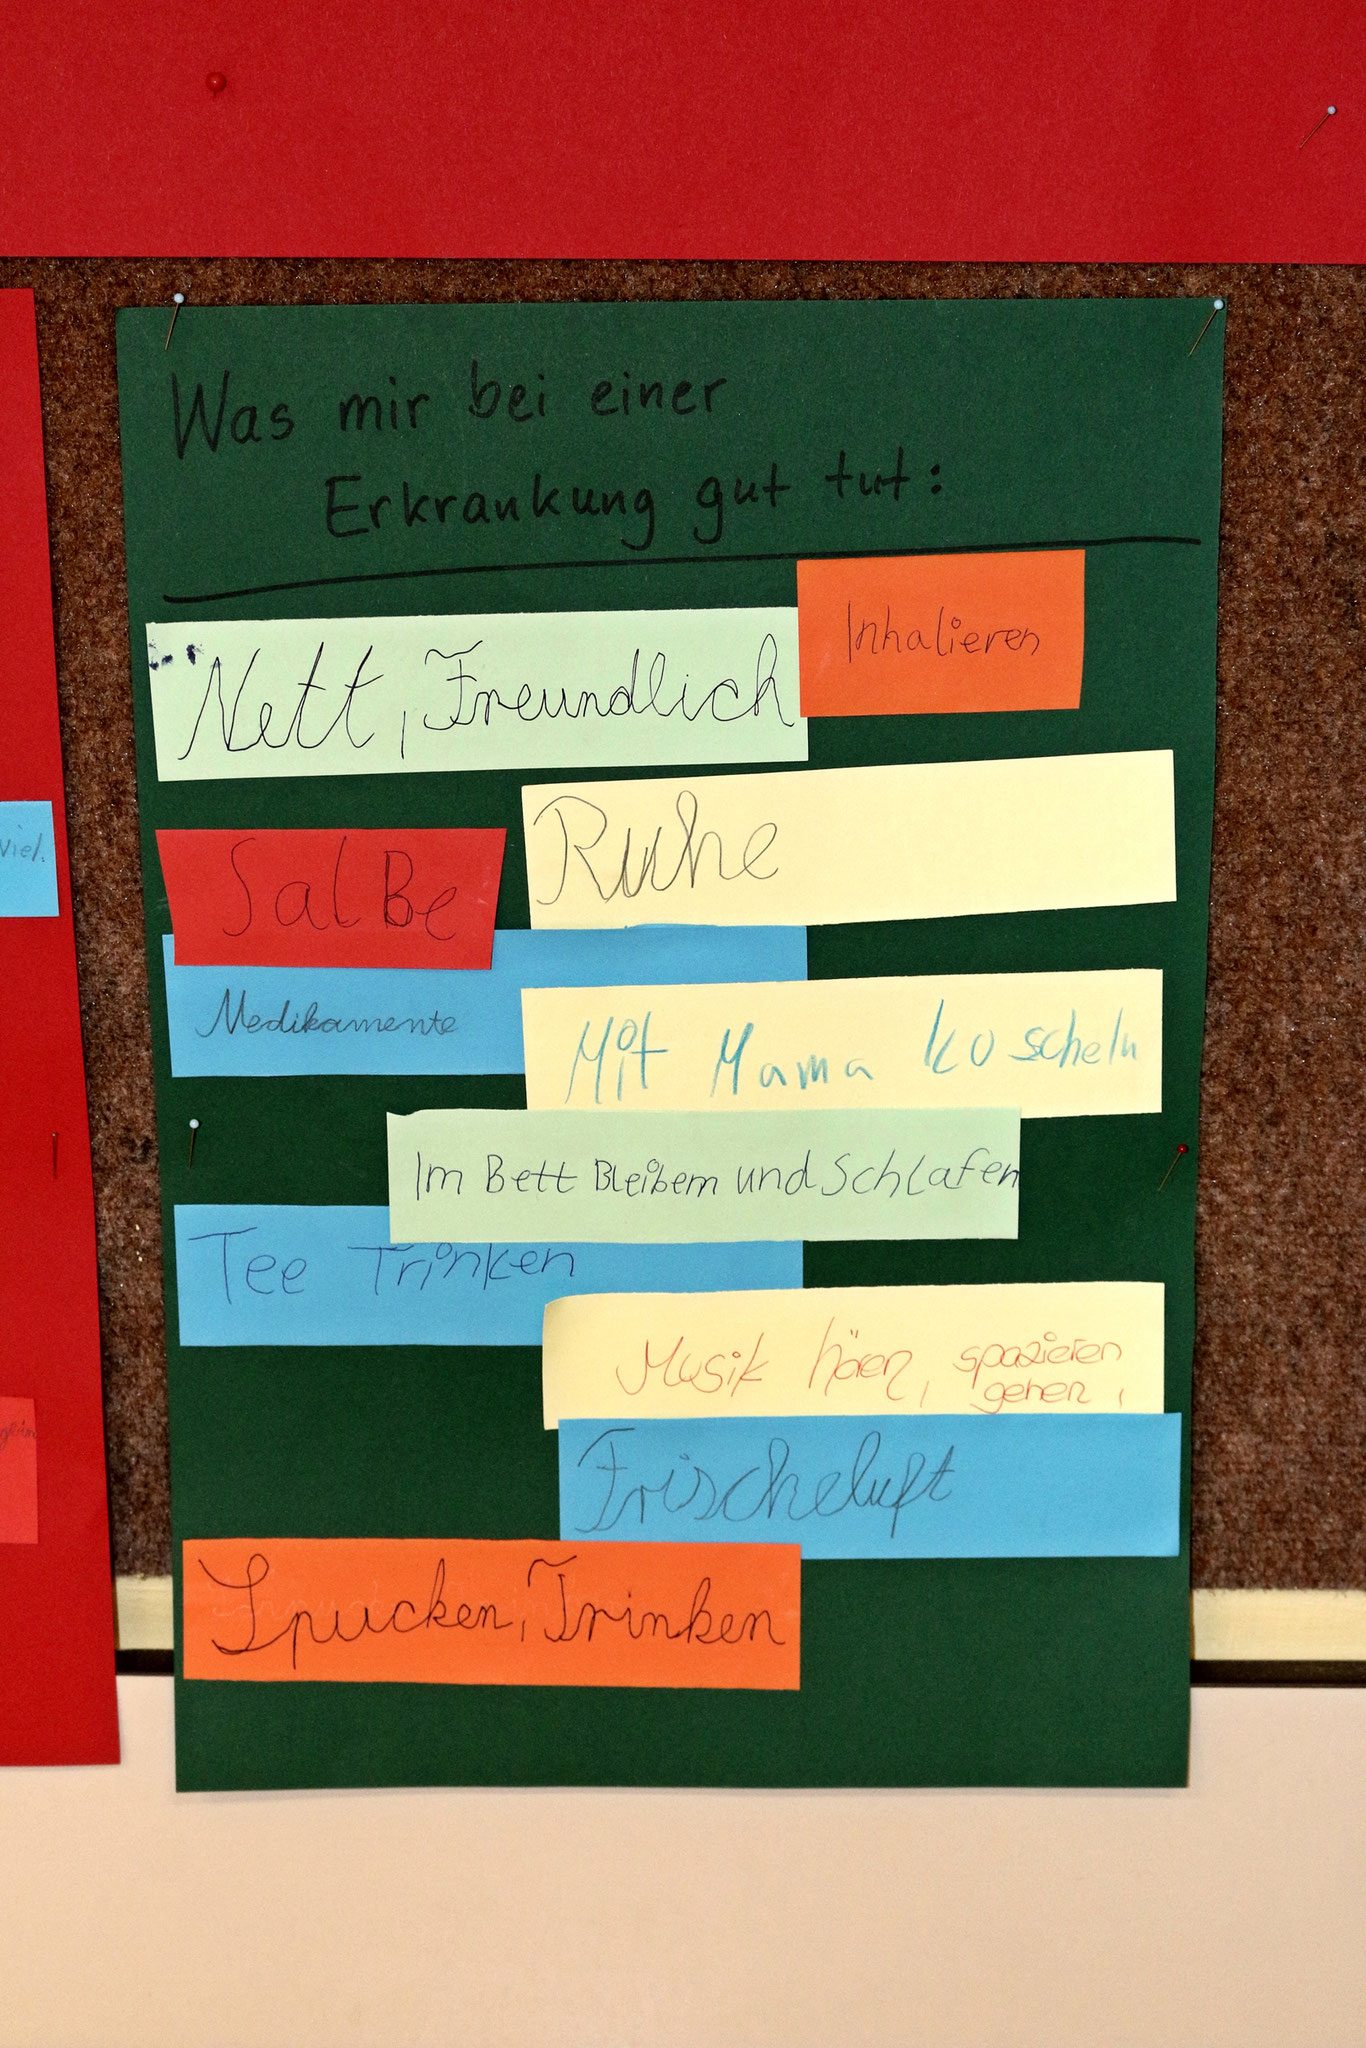 Was mir bei einer
Erkrankung gut tut:
Inhalieren
Nett, Freundlich
Ruhe
SalBe
Medikamente
Mit Mama kuscheln
Im Bett Bleibem und Schlafen
Tee Trinken
Musik hören, spazieren
gehen,
Frischeluft
Spucken, Trinken
viel.